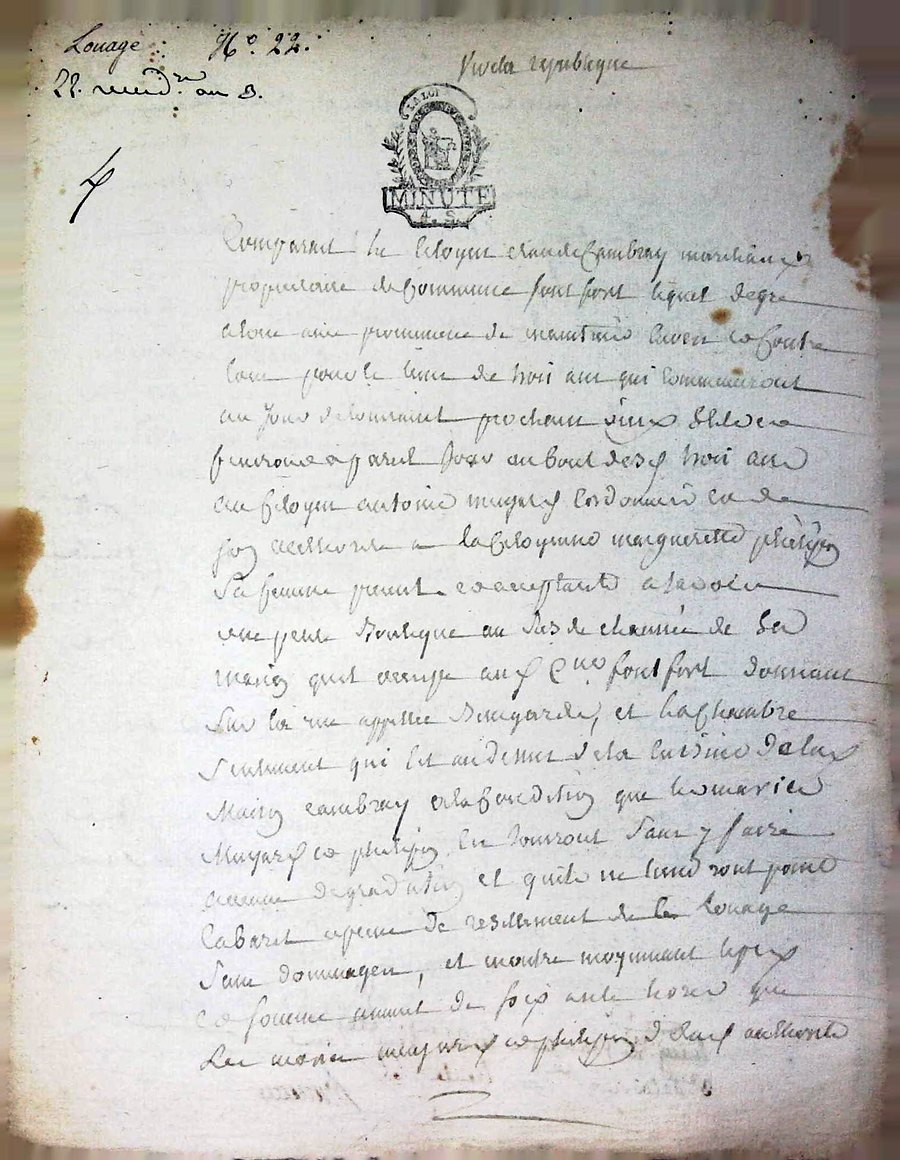 Louage N.° 22.
22. vend.re an 3.
Vive la republique
LA LOI
MINUTE
4. S.
Comparait le Citoyen claude Cambray marchand
proprietaire de Commune font fort lequel degre
alouè avec promesse de maintenir
pour le tems de trois ans qui Commenceront
au Jour prochain vieux Stile et
finiront a pareil Jour au bout desd trois ans
au Citoyen antoine Cordonnier et de
son authorite a la Citoyenne marguerette
Sa femme present et acceptants a Savoir
une petite Boutique au Rés de chaussée de La
maison quil occupe aud C.ne font fort donnant
Sur la rue appellée et la Chambre
Seulement qui Est au dessus de la Cuisine dudit
Maison Cambray a la Condition que le mariés
et en Jouiront Sans y faire
aucune degradation et quils ne tiendront point
Cabaret a peine de resiliment de le Louage
Sans dommages, et moyennant le prix
et Somme de soixante livres que
Les mariés et dud authorité